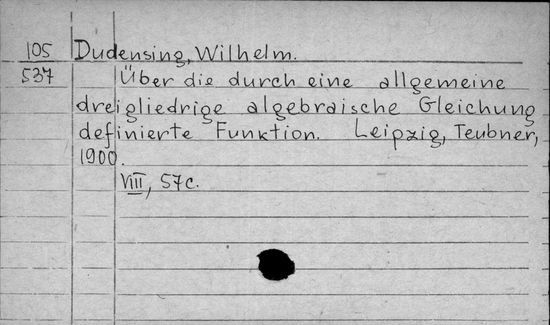 105 Dudensing, Wilhelm.
537 Über die durch eine allgemeine
dreigliedrige algebraische Gleichung
definierte Funktion. Leipzig, Teubner,
1900.
VIII, 57c.